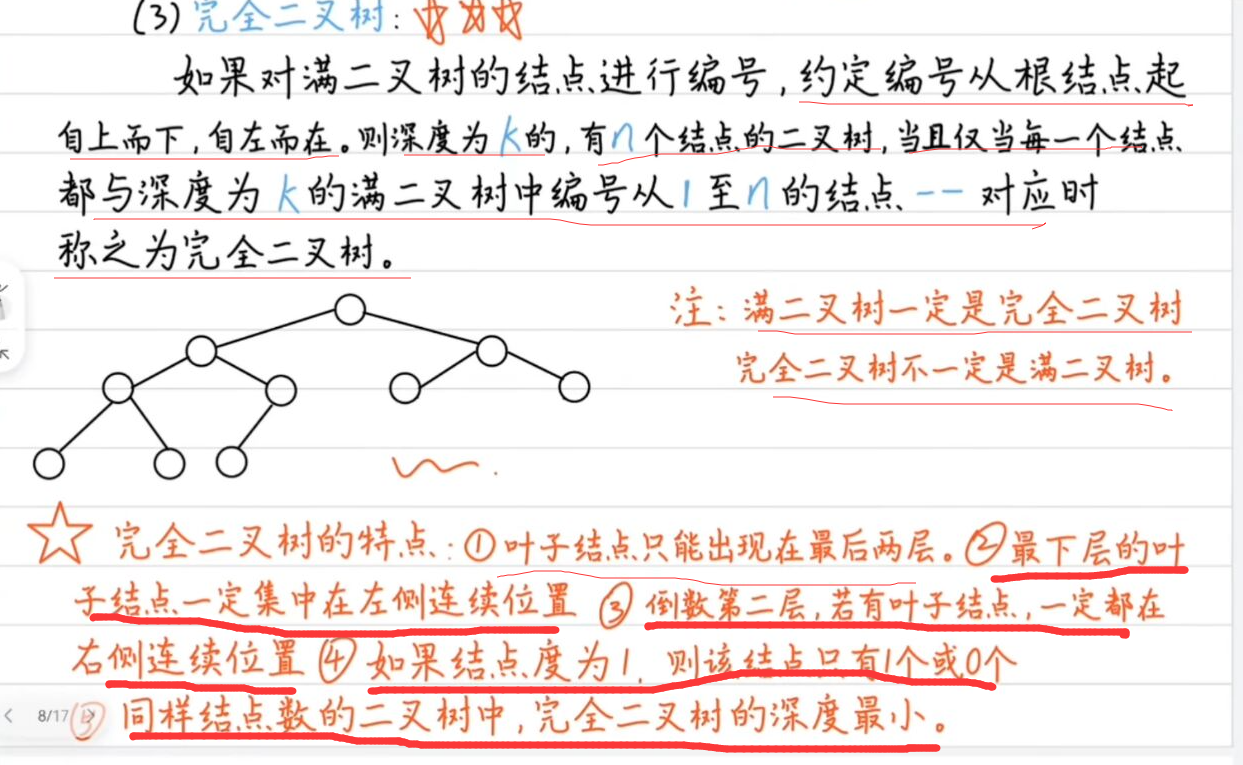 (3) 完全二叉树:
如果对满二叉树的结点进行编号,约定编号从根结点起
自上而下,自左而在。则深度为k的,有n个结点的二叉树,当且仅当每一个结点
都与深度为k的满二叉树中编号从1至n的结点一一对应时
称之为完全二叉树。
注:满二叉树一定是完全二叉树
完全二叉树不一定是满二叉树。
完全二叉树的特点:①叶子结点只能出现在最后两层。②最下层的叶
子结点一定集中在左侧连续位置 ③ 倒数第二层,若有叶子结点,一定都在
右侧连续位置 ④ 如果结点度为1,则该结点只有1个或0个
8/17
⑤ 同样结点数的二叉树中,完全二叉树的深度最小。